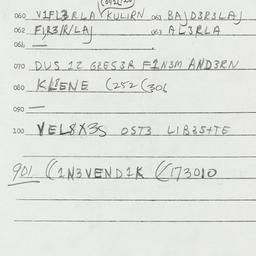 060 V1FL3RLA/KULIRN 061 BAJD3R3LAJ
062 F1R3IR/LAJ 063 AL3RLA
064 —
070 DUS 12 GRES3R F1N3M AND3RN
080 KL8ENE (252 (306
090 —
100 VEL8X3S OST3 LIB35+TE
901 ((1N3VEND1K ((173010